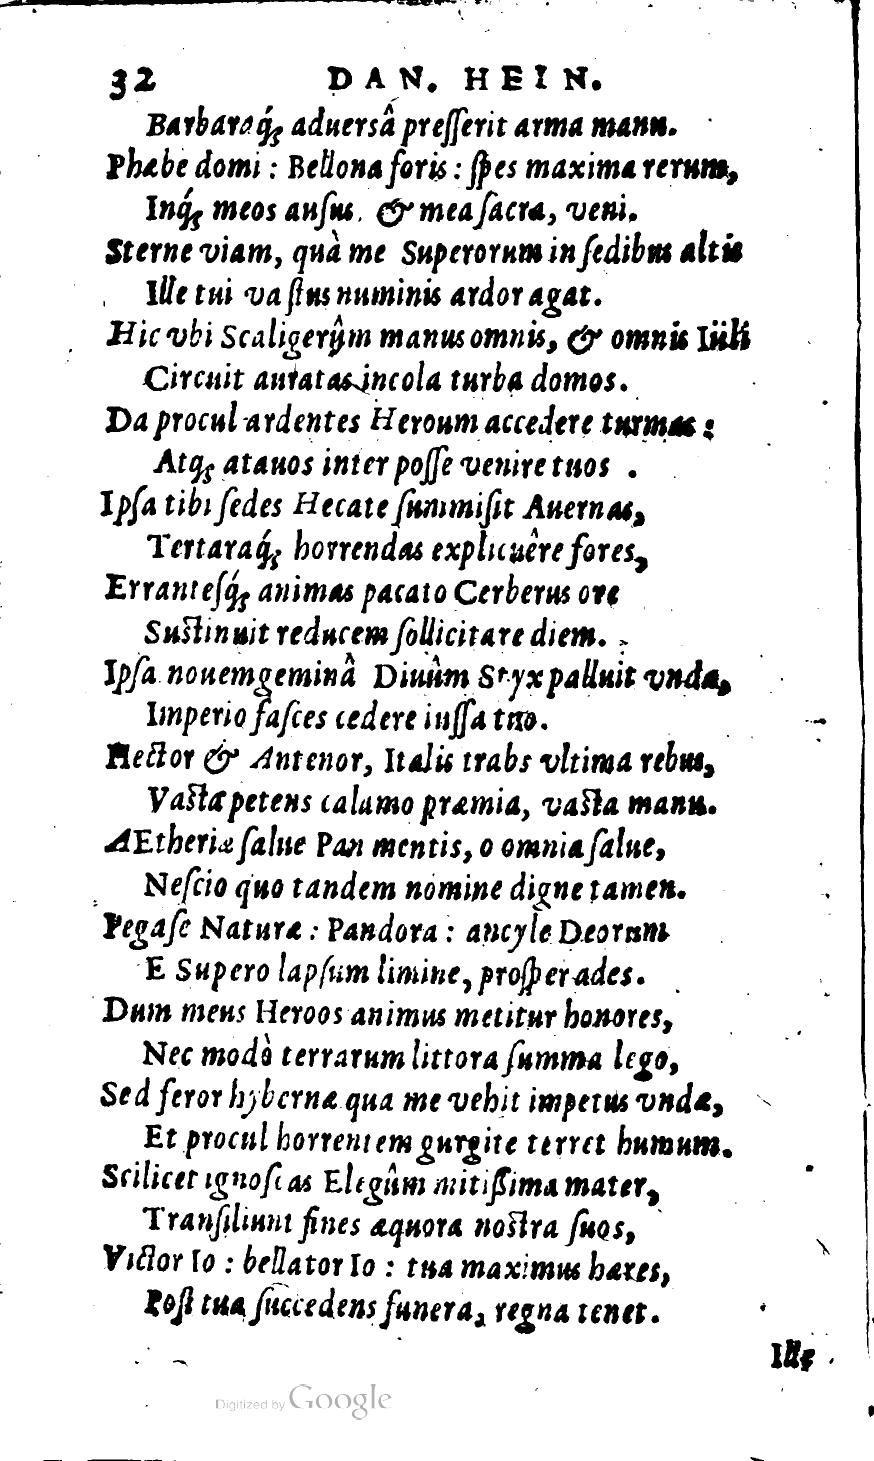 32 DAN. HEIN.
Barbaraq́; aduersâ presserit arma manu.
Phæbe domi : Bellona foris : spes maxima rerum,
Inq́; meos ausus, & mea sacra, veni.
Sterne viam, quà me Superorum in sedibus altis
Ille tui vastus numinis ardor agat.
Hic vbi Scaligerûm manus omnis, & omnis Iüli
Circuit auratas incola turba domos.
Da procul ardentes Heroum accedere turmas :
Atq; atauos inter posse venire tuos .
Ipsa tibi sedes Hecate summisit Auernas,
Tertaraq́; horrendas explicuêre fores,
Errantesq́; animas pacato Cerberus ore
Sustinuit reducem sollicitare diem.
Ipsa nouemgeminâ Diuûm Styx palluit vnda,
Imperio fasces cedere iussa tuo.
Hector & Antenor, Italis trabs vltima rebus,
Vasta petens calamo præmia, vasta manu.
AEtheriæ salue Pan mentis, o omnia salue,
Nescio quo tandem nomine digne tamen.
Pegase Naturæ : Pandora : ancyle Deorum
E Supero lapsum limine, prosper ades.
Dum meus Heroos animus metitur honores,
Nec modò terrarum littora summa lego,
Sed feror hybernæ qua me vehit impetus vndæ,
Et procul horrentem gurgite terret humum.
Scilicet ignoscas Elegûm mitissima mater,
Transiliunt fines æquora nostra suos,
Victor Io : bellator Io : tua maximus hæres,
Post tua succedens funera, regna tenet.
Ille
Digitized by Google